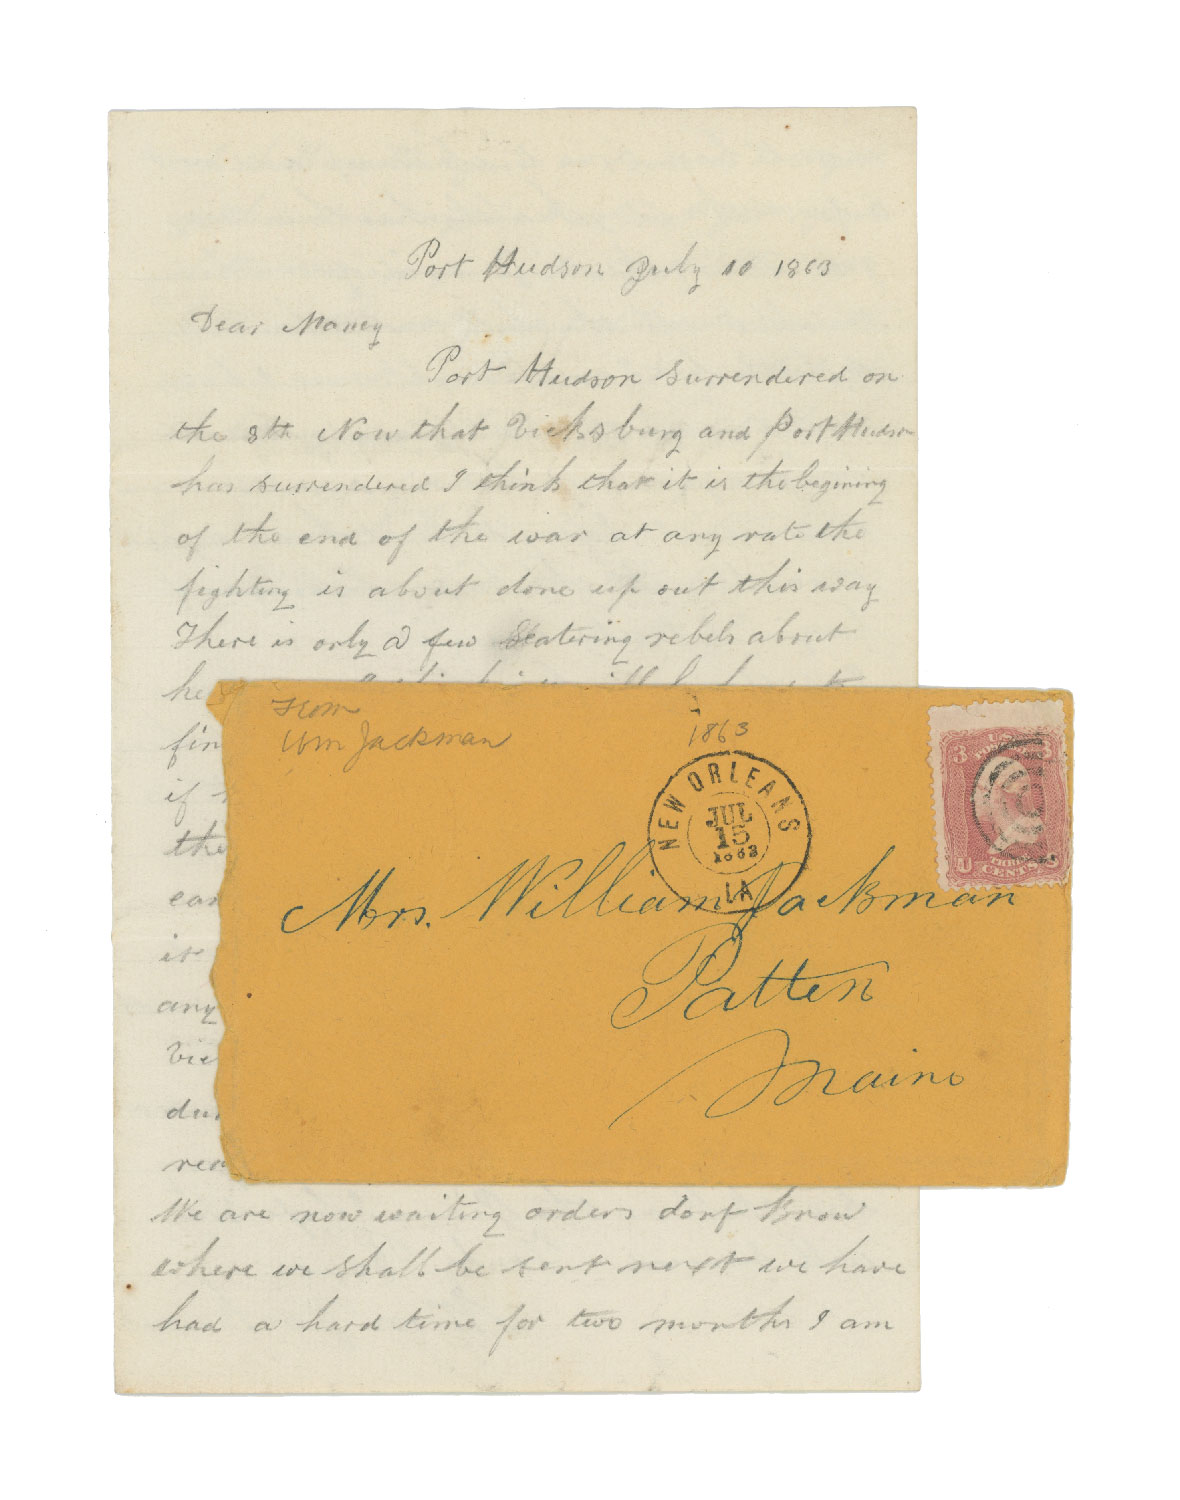 Port Hudson July 10 1863
Dear Nancy
Port Hudson Surrendered on
the 8th Now that Vicksburg and Port Hudson
has surrendered I think that it is the begining
of the end of the war at any rate the
fighting is about done up out this way
There is only a few Scatering rebels about
he
fin
if
the
ear
it
any
Vic
du
rea
We are now waiting orders dont know
where we shall be sent next we have
had a hard time for two months I am
From
Wm Jackman
1863
NEW ORLEANS
JUL
15
1863
LA
3 U.S. 3
POSTAGE
U THREE S
CENTS
Mrs. William Jackman
Patten
Maine